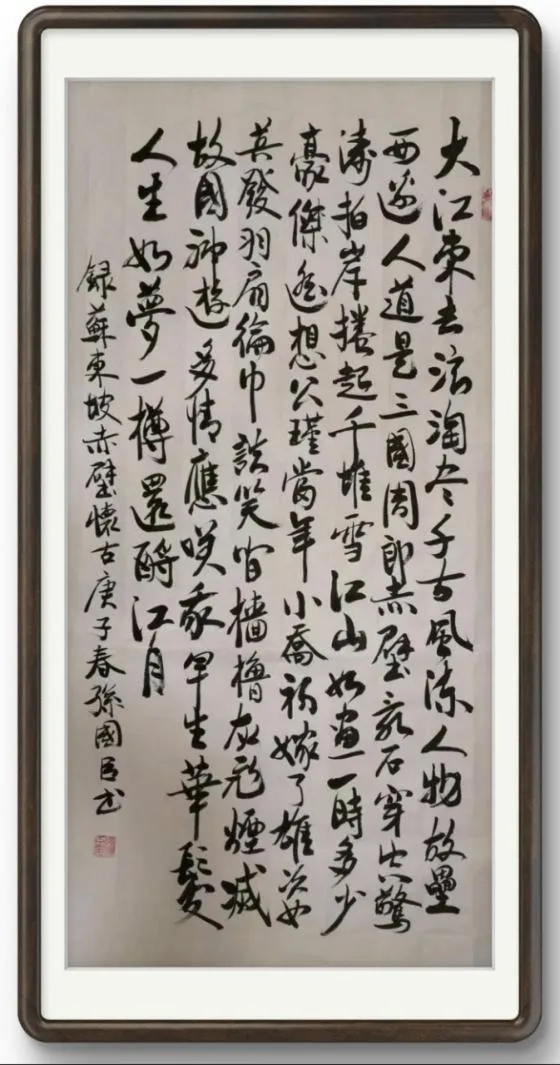 大江東去浪淘尽千古風流人物故壘
西邊人道是三國周郎赤壁亂石穿空驚
濤拍岸捲起千堆雪江山如畫一時多少
豪傑遙想公瑾當年小喬初嫁了雄姿
英發羽扇綸巾談笑间檣櫓灰飛煙滅
故國神遊多情應咲我早生華髮
人生如夢一樽還酹江月
録蘇東坡赤壁懷古庚子春孫國臣书